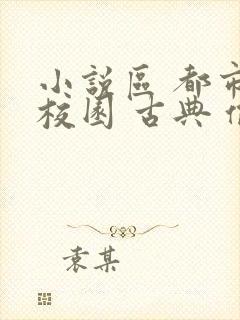 小說區 都市
校園 古典
袁某